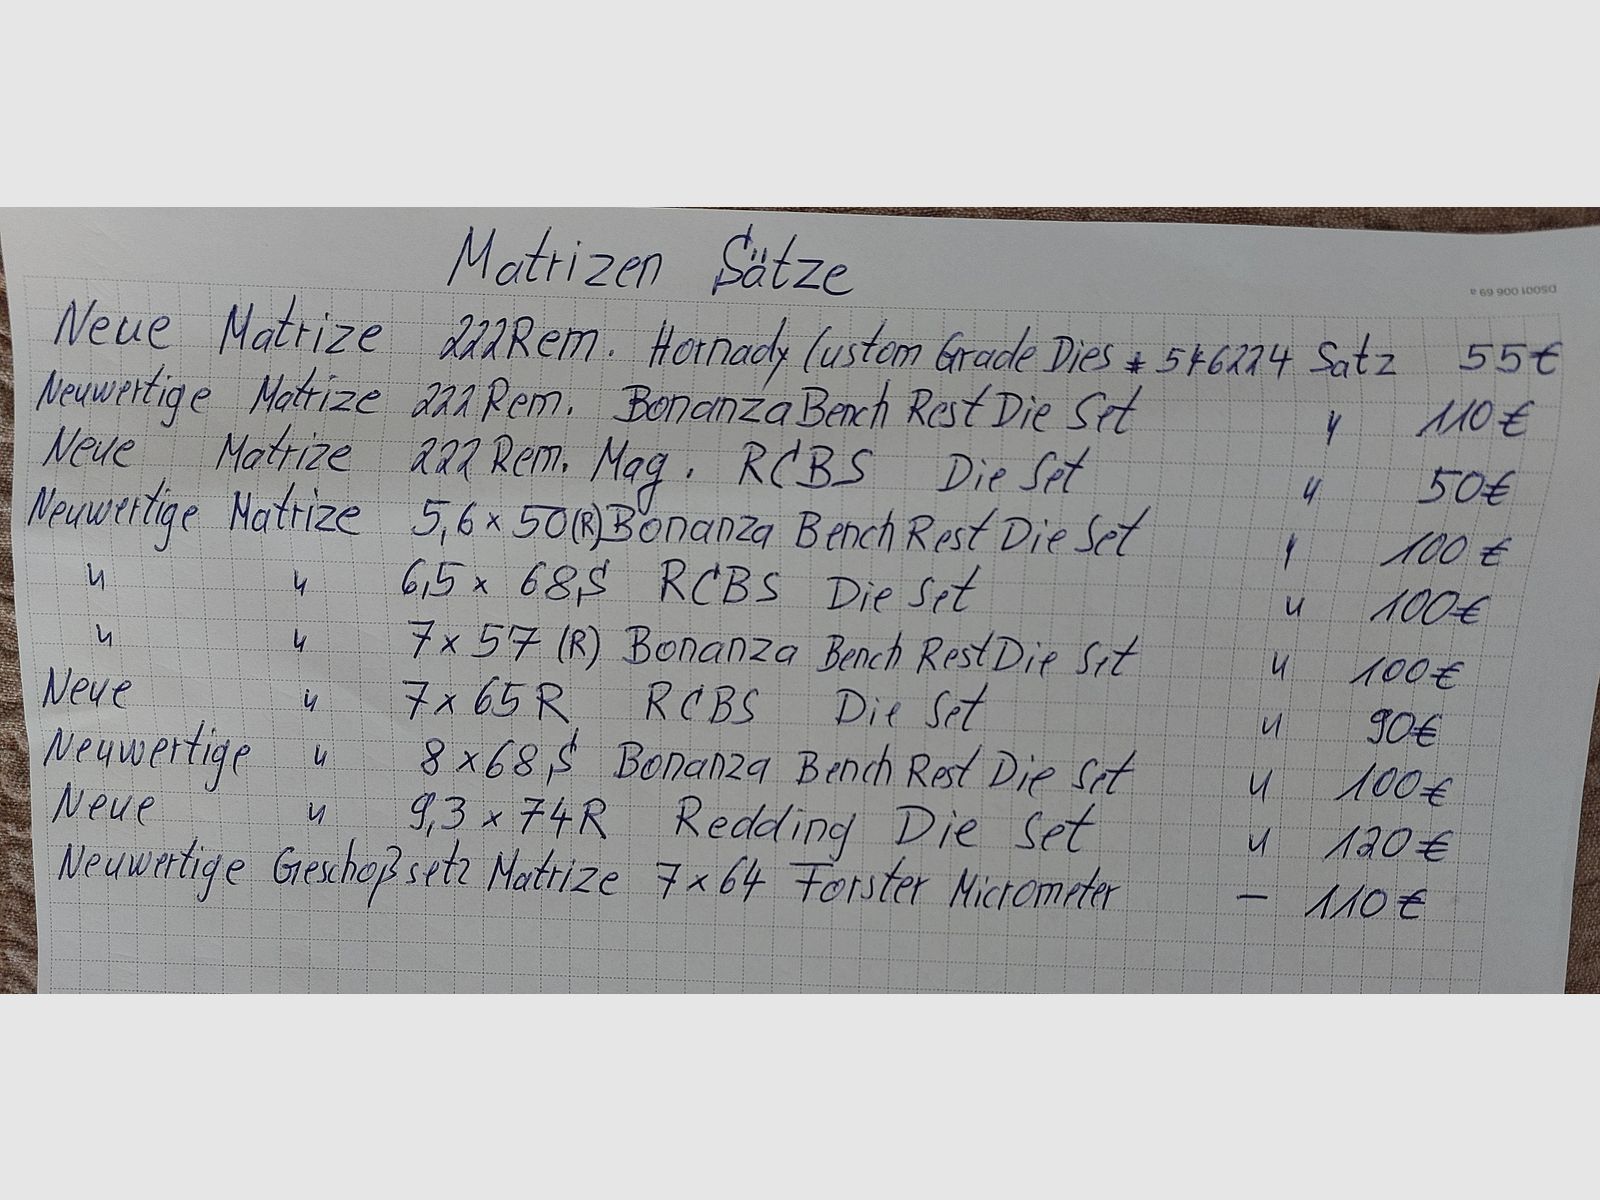 Matrizen Sätze
DS001 006 69 a
Neue Matrize 222 Rem. Hornady Custom Grade Dies * 546224 Satz 55€
Neuwertige Matrize 222 Rem. Bonanza Bench Rest Die Set " 110€
Neue Matrize 222 Rem. Mag. RCBS Die Set " 50€
Neuwertige Matrize 5,6 x 50(R) Bonanza Bench Rest Die Set " 100€
" " 6,5 x 68,S RCBS Die Set " 100€
" " 7 x 57 (R) Bonanza Bench Rest Die Set " 100€
Neue " 7 x 65 R RCBS Die Set " 90€
Neuwertige " 8 x 68,S Bonanza Bench Rest Die Set " 100€
Neue " 9,3 x 74R Redding Die Set " 120€
Neuwertige Geschoßsetz Matrize 7 x 64 Forster Micrometer – 110€